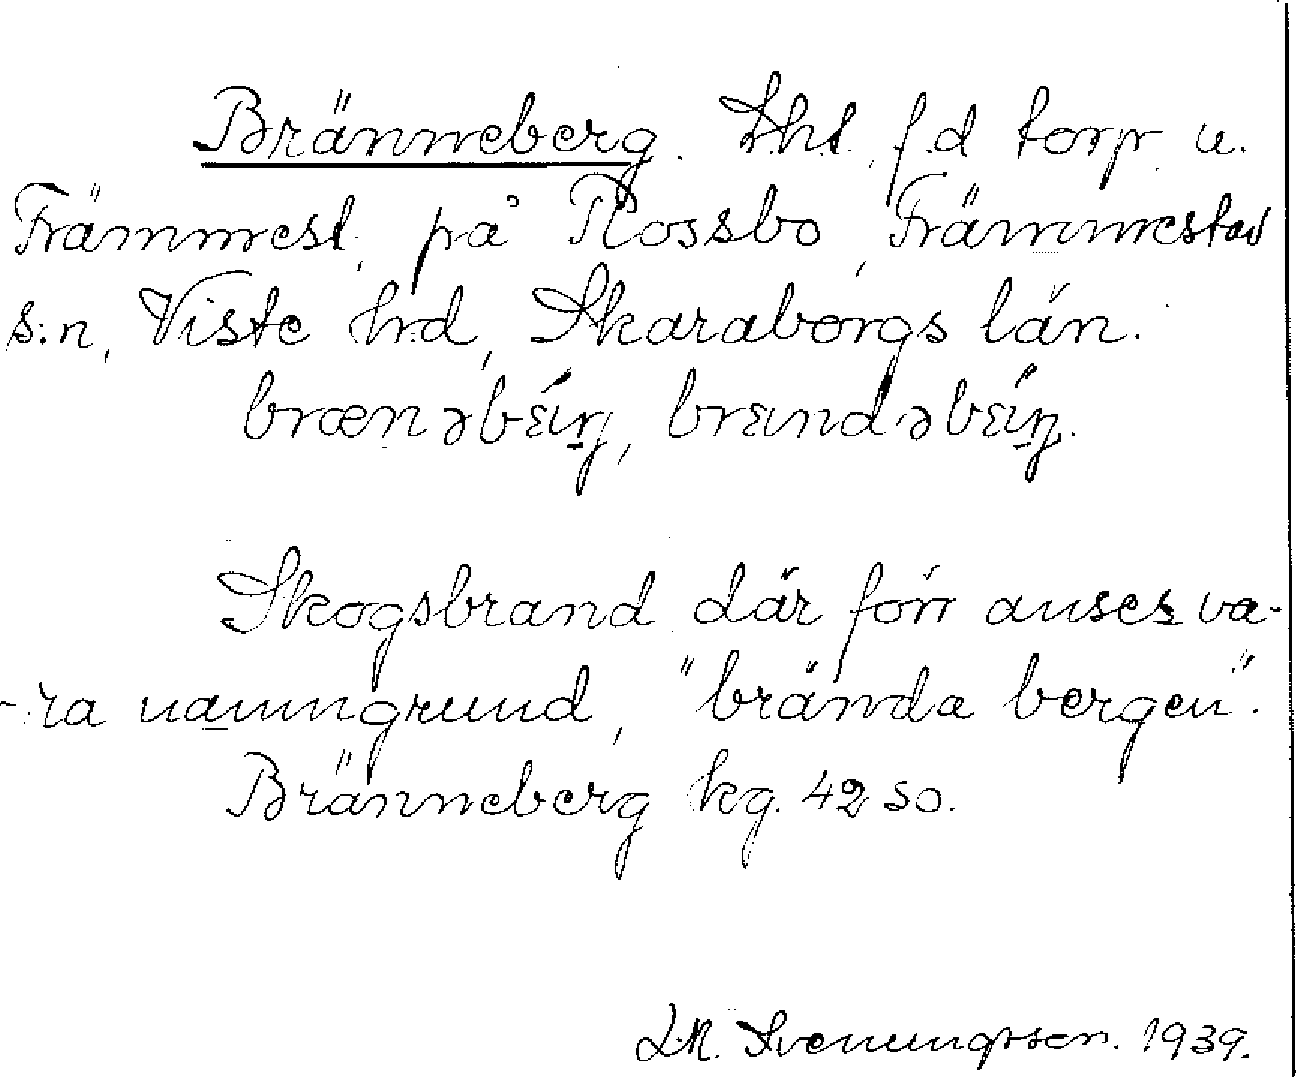 Bränneberg. Lht. f.d torp u.
Främmest. på Rossbo, Främmestad
s:n, Viste hrd, Skaraborgs län.
brænəbɛ́iŋ, brɛindəbɛ́iŋ.
Skogsbrand där förr anses va-
-ra namngrund, "brända bergen".
Bränneberg kg. 42 so.
L.M. Svenungsson. 1939.